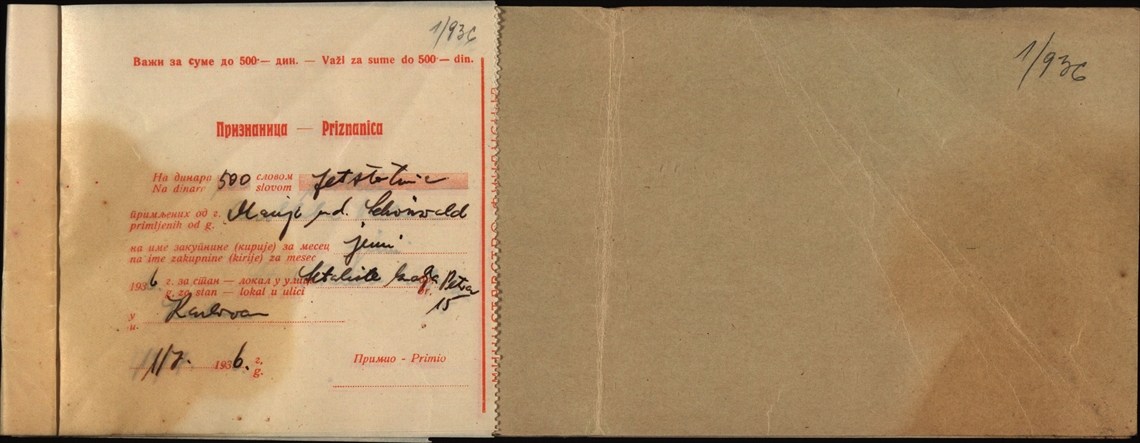 1/936
Важи за суме до 500·— дин. — Važi za sume do 500·— din.
Признаница — Priznanica
На динара 500 словом
Na dinara slovom petstotine
примљених од г. Marije ud. Schönwald
primljenih od g.
на име закупнине (кирије) за месец juni
na ime zakupnine (kirije) za mesec
1936 г. за стан — локал у улици Šetalište kralja Petra
g. za stan — lokal u ulici br. 15
у Karlovac
u
1/7. 1936. г.
g.
Примио - Primio
1/936